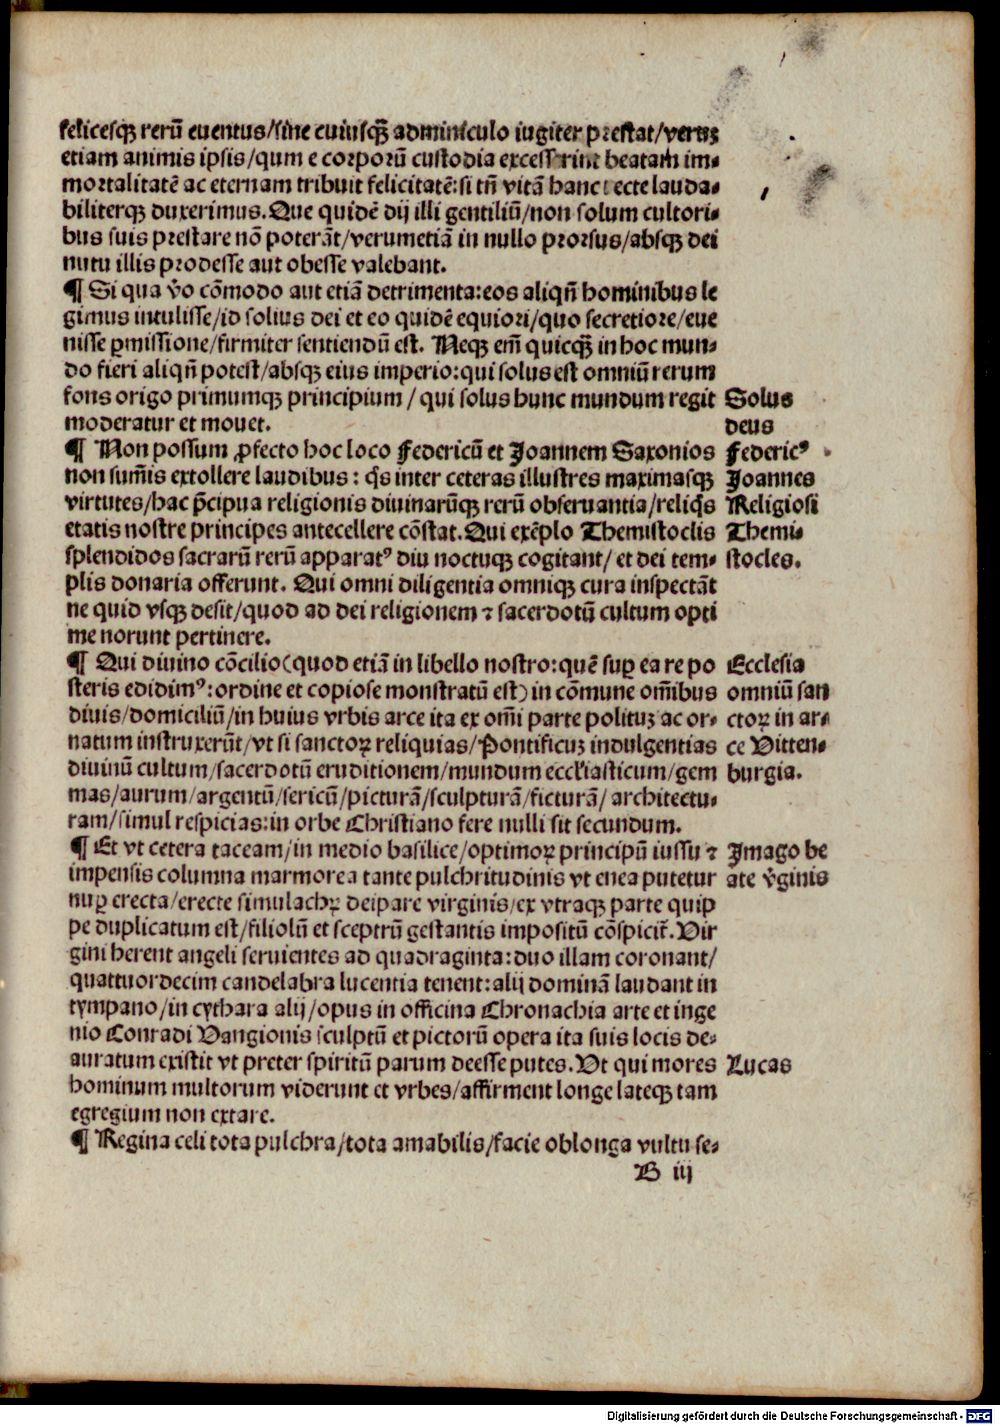 felicesqꝫ rerū euentus/sine cuiusqꝫ adminiculo iugiter prestat/verꝫ
etiam animis ipsis/qum e corporū custodia excesserint beatam im⸗
mortalitatē ac eternam tribuit felicitatē:si tñ vitā hanc recte lauda⸗
biliterqꝫ duxerimus.Que quidē dij illi gentiliū/non solum cultori⸗
bus suis prestare nō poterāt/verumetiā in nullo prorsus/absqꝫ dei
nutu illis prodesse aut obesse valebant.
¶ Si qua v̄o cōmodo aut etiā detrimenta:eos aliqñ hominibus le
gimus intulisse/id solius dei et eo quidē equiori/quo secretiore/eue
nisse ꝑmissione/firmiter sentiendū est. Neqꝫ em̄ quicqꝫ̄ in hoc mun⸗
do fieri aliqñ potest/absqꝫ eius imperio:qui solus est omniū rerum
fons origo primumqꝫ principium / qui solus hunc mundum regit
Solus
moderatur et mouet.
deus
¶ Non possum ꝓfecto hoc loco Federicū et Joannem Saxonios
Federicꝰ
non sum̄is extollere laudibus : qͥs inter ceteras illustres maximasqꝫ
Joannes
virtutes/hac p̄cipua religionis diuinarūqꝫ rerū obseruantia/reliqͥs
Religiosi
etatis nostre principes antecellere cōstat.Qui exēplo Themistoclis
Themi⸗
splendidos sacrarū rerū apparatꝰ diu noctuqꝫ cogitant/ et dei tem⸗
stocles.
plis donaria offerunt. Qui omni diligentia omniqꝫ cura inspectāt
ne quid vsqꝫ desit/quod ad dei religionem ⁊ sacerdotū cultum opti
me norunt pertinere.
¶ Qui diuino cōcilio(quod etiā in libello nostro:quē suꝑ ea re po
Ecclesia
steris edidimꝰ:ordine et copiose monstratū est) in cōmune om̄ibus
omniū san
diuis/domiciliū/in huius vrbis arce ita ex om̄i parte polituꝫ ac or⸗
ctoꝝ in ar⸗
natum instruxerūt/vt si sanctoꝝ reliquias/Pontificuꝫ indulgentias
ce Vitten⸗
diuinū cultum/sacerdotū eruditionem/mundum ecclesiasticum/gem
burgia.
mas/aurum/argentū/sericū/picturā/sculpturā/ficturā/ architectu⸗
ram/simul respicias:in orbe Christiano fere nulli sit secundum.
¶ Et vt cetera taceam/in medio basilice/optimoꝝ principū iussu ⁊
Jmago be
impensis columna marmorea tante pulchritudinis vt enea putetur
ate v̄ginis
nuꝑ erecta/erecte simulachꝝ deipare virginis/ex vtraqꝫ parte quip
pe duplicatum est/filiolū et sceptrū gestantis impositū cōspicit̄.Vir
gini herent angeli seruientes ad quadraginta:duo illam coronant/
quattuordecim candelabra lucentia tenent:alij dominā laudant in
tympano/in cythara alij/opus in officina Chronachia arte et inge
nio Conradi Vangionis sculptū et pictorū opera ita suis locis de⸗
auratum existit vt preter spiritū parum deesse putes.Vt qui mores
Lucas
hominum multorum viderunt et vrbes/affirment longe lateqꝫ tam
egregium non extare.
¶ Regina celi tota pulchra/tota amabilis/facie oblonga vultu se⸗
B iij
Digitalisierung gefördert durch die Deutsche Forschungsgemeinschaft - DFG